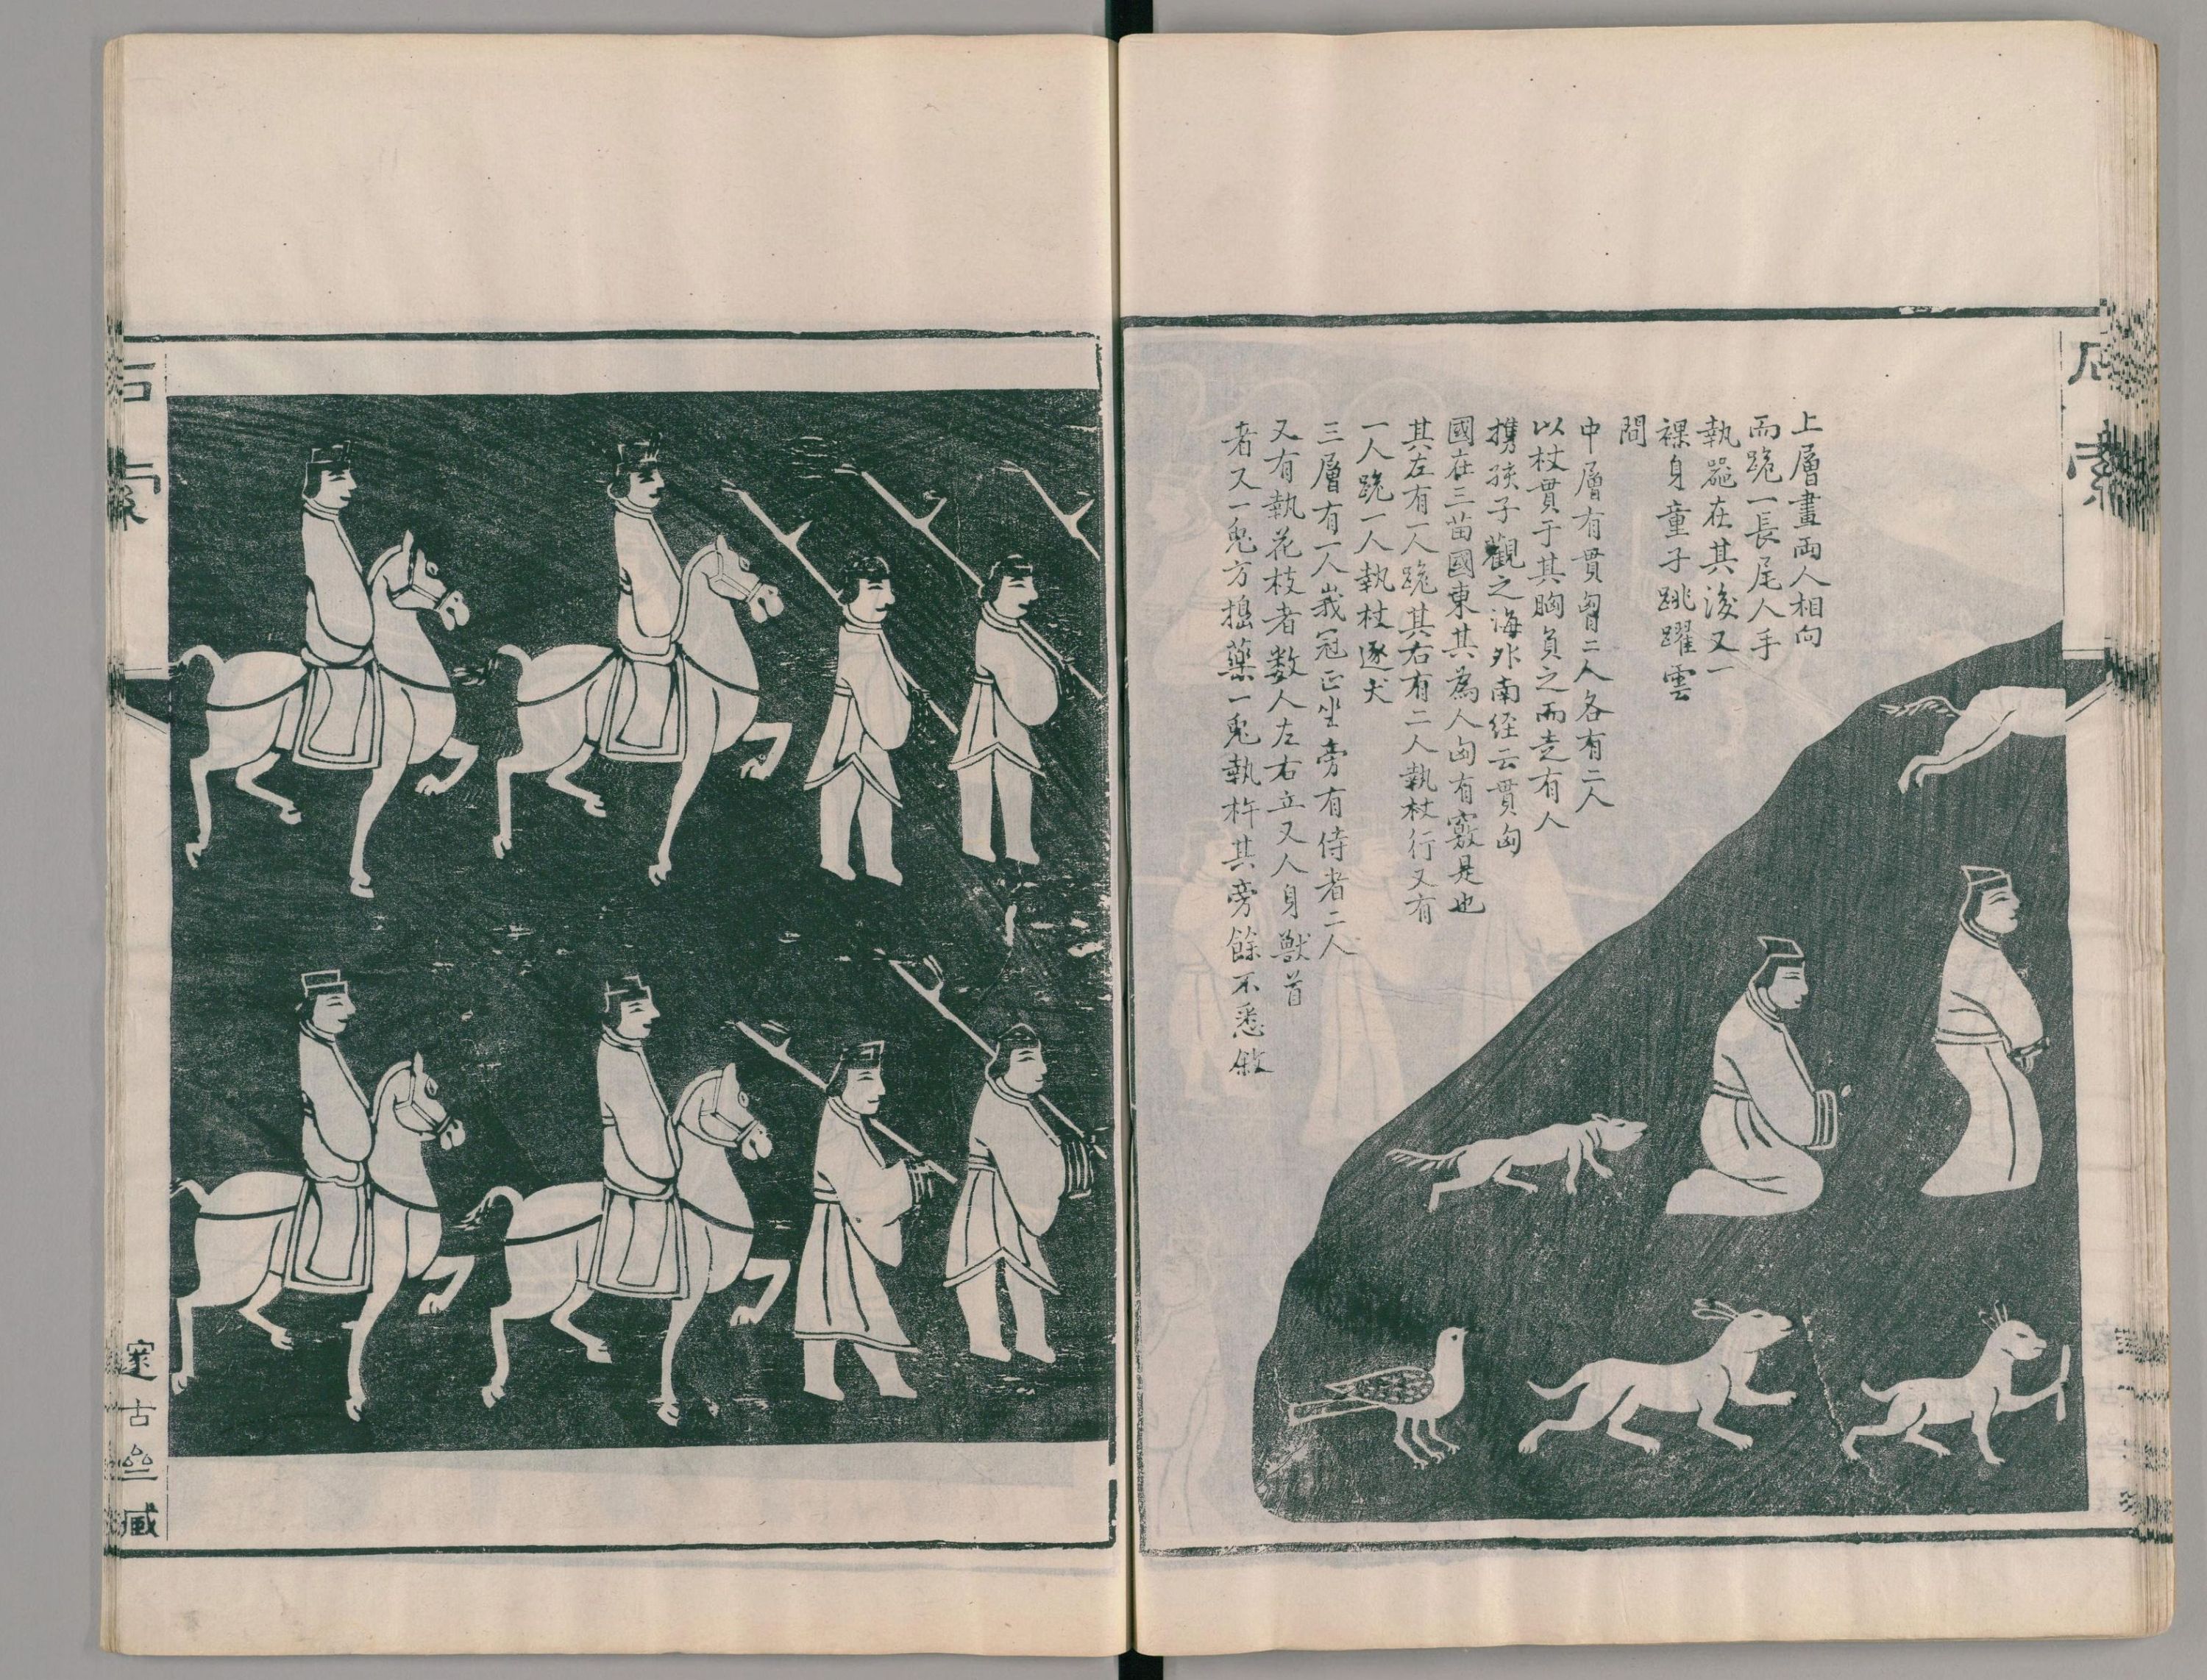 石索
上層畫兩人相向
而跪一長尾人手
執器在其後又一
裸身童子跳躍雲
間
中層有貫匈者二人各有二人
以杖貫于其胸負之而走有人
攜孩子觀之海外南经云貫匈
國在三苗國東其為人匈有竅是也
其左有一人跪其右有二人執杖行又有
一人跪一人執杖逐犬
三層有一人峩冠正坐旁有侍者二人
又有執花枝者数人左右立又人身獸首
者又一兎方搗藥一兎執杵其旁餘不悉敘
石索
邃古䜴臧